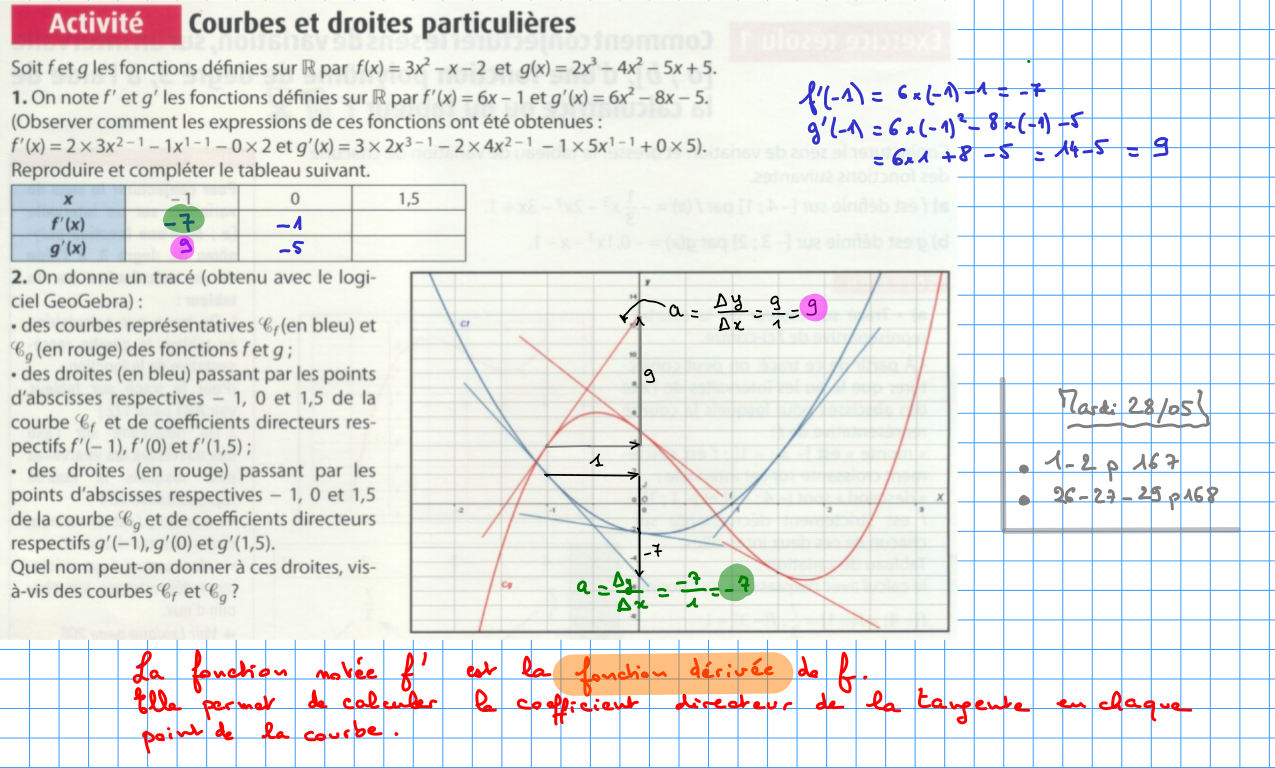 Activité Courbes et droites particulières
Soit f et g les fonctions définies sur ℝ par f(x) = 3x² – x – 2 et g(x) = 2x³ – 4x² – 5x + 5.
1. On note f′ et g′ les fonctions définies sur ℝ par f′(x) = 6x – 1 et g′(x) = 6x² – 8x – 5.
(Observer comment les expressions de ces fonctions ont été obtenues :
f′(x) = 2 × 3x²⁻¹ – 1x¹⁻¹ – 0 × 2 et g′(x) = 3 × 2x³⁻¹ – 2 × 4x²⁻¹ – 1 × 5x¹⁻¹ + 0 × 5).
Reproduire et compléter le tableau suivant.
x – 1 0 1,5
f′(x) -7 -1
g′(x) 9 -5
f'(-1) = 6×(-1)-1 = -7
g'(-1) = 6×(-1)² - 8×(-1) -5
= 6×1 +8 -5 = 14-5 = 9
2. On donne un tracé (obtenu avec le logi-
ciel GeoGebra) :
• des courbes représentatives 𝒞f (en bleu) et
𝒞g (en rouge) des fonctions f et g ;
• des droites (en bleu) passant par les points
d'abscisses respectives – 1, 0 et 1,5 de la
courbe 𝒞f et de coefficients directeurs res-
pectifs f′(– 1), f′(0) et f′(1,5) ;
• des droites (en rouge) passant par les
points d'abscisses respectives – 1, 0 et 1,5
de la courbe 𝒞g et de coefficients directeurs
respectifs g′(–1), g′(0) et g′(1,5).
Quel nom peut-on donner à ces droites, vis-
à-vis des courbes 𝒞f et 𝒞g ?
y
a = Δy/Δx = 9/1 = 9
Cf
9
1
-2 -1 0 1 2 3 x
-7
Cg
a = Δy/Δx = -7/1 = -7
Mardi 28/05
• 1-2 p 167
• 26-27-29 p168
La fonction notée f' est la fonction dérivée de f.
Elle permet de calculer le coefficient directeur de la tangente en chaque
point de la courbe.